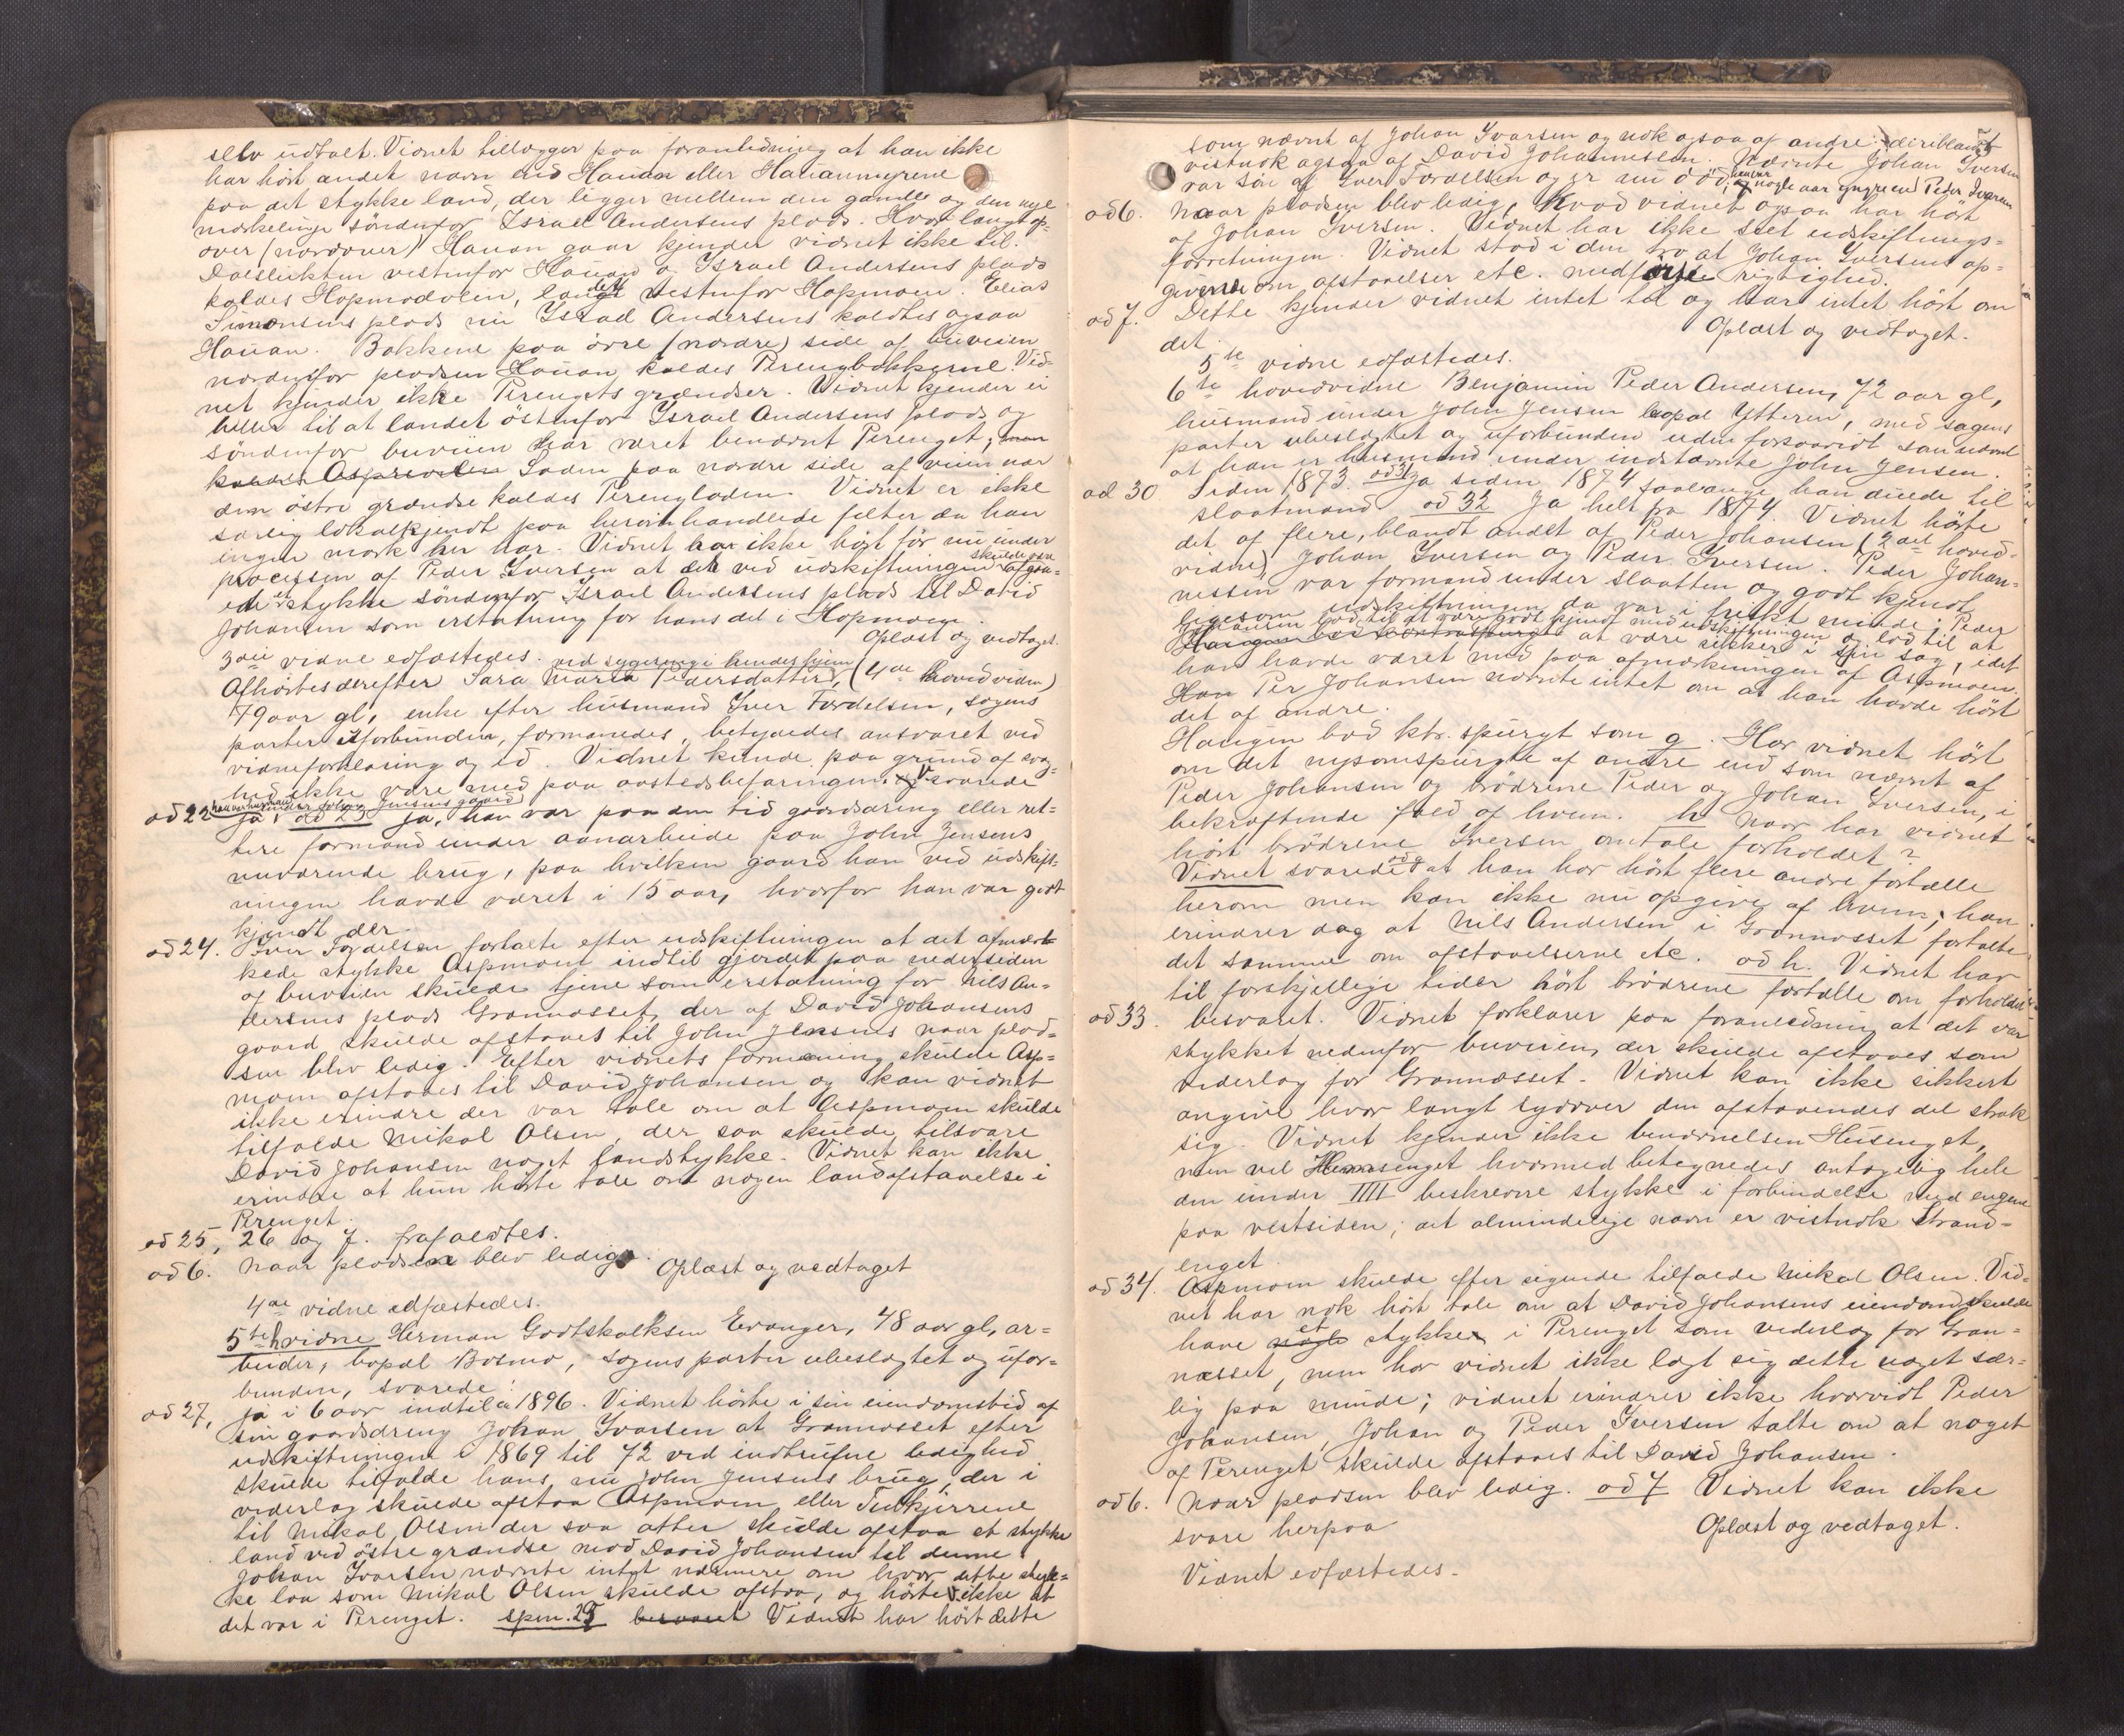 selv udtalt. Vidnet tillægger paa foranledning at han ikke
har hørt andet navn end Hauan eller Hauanmyrene
paa det stykke land, der ligger mellem den gamle og den nye
merkelinje søndenfor Israel Andersens plads. Hvor langt op-
over (nordover) Hauan gaar kjender vidnet ikke til.
Dalslukten vestenfor Hauan og Israel Andersens plads
kaldes Hopmodalen, landet vestenfor Hopmoen. Elias
Simonsens plads nu Israel Andersens kaldtes ogsaa
Hauan. Bakkene paa øvre (nordre) side af buveien
nordenfor pladsen Hauan kaldes Perengbakkerne. Vid-
net kjender ikke Perengets grændser. Vidnet kjender ei
heller til at landet østenfor Israel Andersens plads og
søndenfor buveien har været benævnt Perenget, man
kalder Laden paa nordre side af veien nær
den østre grændse kaldes Perengladen. Vidnet er ikke
særlig lokalkjendt paa heromhandlede felter da han
ingen mark her har. Vidnet har ikke hørt før nu under
processen af Peder Iversen at det ved udskiftningen skulde være afgaa-
ede et stykke søndenfor Israel Andersens plads til David
Johansen som erstatning for hans del i Hopmoen.
Oplæst og vedtaget.
3die vidne edfæstedes.
Afhørtes derefter ved sygeseng i hendes hjem Sara Maria Pedersdatter, (4de hovedvidne)
79 aar gl, enke efter husmand Iver Fordelsen, sagens
parter uforbunden, formanedes, betydedes ansvaret ved
vidneforklaring og ed. Vidnet kunde paa grund af svag-
hed ikke være med paa aastedsbefaringen. V. svarede
ad 22 Ja, han var husmand under John Jensens gaard. ad 23 Ja, han var paa den tid gaardsdreng eller ret-
tere formand under aanarbeide paa John Jensens
nuværende brug, paa hvilken gaard han ved udskift-
ningen havde været i 15 aar, hvorfor han var godt
kjendt der.
ad 24. Iver Fordelsen fortalte efter udskiftningen at det afmær-
kede stykke Aspmoen indtil gjerdet paa nedersiden
af buveien skulde tjene som erstatning for Nils An-
dersens plads Grannæsset, der af David Johansens
gaard skulde afstaaes til John Jensens naar plad-
sen blev ledig. Efter vidnets formening skulde Asp-
moen afstaaes til David Johansen og kan vidnet
ikke erindre der var tale om at Aspmoen skulde
tilfalde Mikal Olsen, der saa skulde tilsvare
David Johansen noget landstykke. Vidnet kan ikke
erindre at hun hørte tale om nogen landafstaaelse i
Perenget.
ad 25, 26 og 7. frafaldtes.
ad 6. Naar pladsen blev ledig. Oplæst og vedtaget
4de vidne edfæstedes.
5te h vidne Herman Godtskalksen Evanger, 48 aar gl, ar-
beider, bopæl Bosmo, sagens parter ubeslægtet og ufor-
bunden, svarede:
ad 27, Ja i 6 aar indtil 1896. Vidnet hørte i sin eiendomstid af
sin gaardsdreng Johan Ivarsen at Grannæsset efter
udskiftningen i 1869 til 72 ved indtrufne ledighed
skulde tilfalde hans, nu John Jensens brug, der i
vederlag skulde afstaa Aspmoen eller Tuvkjerrene
til Mikal Olsen der saa atter skulde afstaa et stykke
land ved østre grændse mod David Johansen til denne.
Johan Ivarsen nævnte intet nærmere om hvor dette styk-
ke laa som Mikal Olsen skulde afstaa, og hørte V. ikke at
det var i Perenget. spm. 28 besvaret Vidnet har hørt dette
som nævnt af Johan Ivarsen og nok ogsaa af andre, deriblandt
vistnok ogsaa af David Johannesen. Nævnte Johan Iversen
var søn af Iver Fordelsen og er nu død, han var nogle aar yngre end Peder Iversen
ad 6. Naar pladsen blev ledig, hvad vidnet ogsaa har hørt
af Johan Iversen. Vidnet har ikke seet udskiftnings-
forretningen. Vidnet stod i den tro at Johan Iversens op-
givende om afstaaelser etc. medførte rigtighed.
ad 7. Dette kjender vidnet intet til og har intet hørt om
det. Oplæst og vedtaget.
5te vidne edfæstedes.
6te hovedvidne Benjamin Peder Andersen, 72 aar gl,
husmand under John Jensen bopæl Ytteren, med sagens
parter ubeslægtet og uforbunden uden forsaavidt som nævnt
at han er husmand under indstævnte John Jensen.
ad 30 Siden 1873. ad 31 Ja siden 1874 saalænge han duede til
slaatmand ad 32 Ja helt fra 1874. Vidnet hørte
det af flere, blandt andet af Peder Johansen (2det hoved-
vidne) Johan Iversen og Peder Iversen. Peder Johan-
nissen var formand under slaatten og godt kjendt
ligesom udskiftningen da var i friskt minde; Peder
Johansen lod til at være godt kjendt med udskiftningen og lod til at
at være sikker i sin sag, idet
han havde været med paa afmerkningen af Aspmoen.
Han Per Johansen nævnte intet om at han havde hørt
det af andre.
Haugen bad ktr. spurgt som g. Har vidnet hørt
om det nysomspurgte af andre end som nævnt af
Peder Johansen og brødrene Peder og Johan Iversen, i
bekræftende fald af hvem. h Naar har vidnet
hørt brødrene Iversen omtale forholdet?
Vidnet svarede ad g at han har hørt flere andre fortælle
herom men kan ikke nu opgive af hvem; han
erindrer dog at Nils Andersen i Grannæsset fortalte
det samme om afstaaelserne etc. ad h. Vidnet har
til forskjellige tider hørt brødrene fortælle om forholdet.
ad 33. besvaret. Vidnet forklarer paa foranledning at det var
stykket nedenfor buveien, der skulde afstaaes som
vederlag for Grannæsset. Vidnet kan ikke sikkert
angive hvor langt sydover den afstaaendes del strak
sig. Vidnet kjender ikke benævnelsen Husenget,
men vel Hemsenget hvormed betegnedes antagelig hele
den under IIII beskrevne stykke i forbindelse med engene
paa vestsiden; det almindelige navn er vistnok Strand-
enget.
ad 34. Aspmoen skulde efter sigende tilfalde Mikal Olsen. Vid-
net har nok hørt tale om at David Johansens eiendom skulde
have et stykke i Perenget som vederlag for Gran-
næsset, men har vidnet ikke lagt sig dette noget sær-
lig paa minde; vidnet erindrer ikke hvorvidt Peder
Johansen, Johan og Peder Iversen talte om at noget
af Perenget skulde afstaaes til David Johansen.
ad 6. Naar pladsen blev ledig. ad 7 Vidnet kan ikke
svare herpaa Oplæst og vedtaget.
Vidnet edfæstedes.